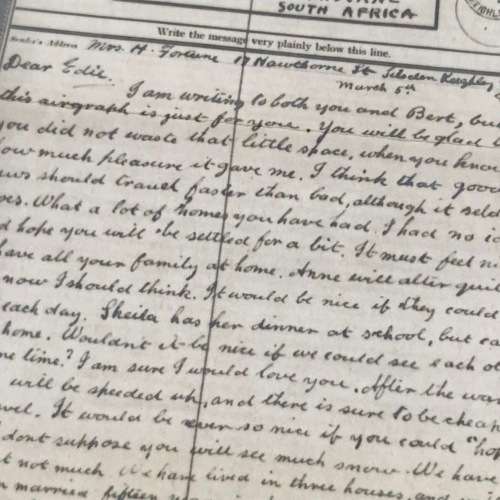 SOUTH AFRICA
Write the message very plainly below this line.
Sender's Address Mrs. H. Fortune 17 Hawthorne St Silsden Keighley
March 5th
Dear Edie.
I am writing to both you and Bert, but
this airgraph is just for you. You will be glad
you did not waste that little space, when you know
how much pleasure it gave me. I think that good
should travel faster than bad, although it
What a lot of "homes" you have had. I had no
hope you will be settled for a bit. It must feel
have all your family at home. Anne will alter
now I should think. It would be nice if they could
each day. Sheila has her dinner at school, but
home. Wouldn't it be nice if we could see each
time? I am sure I would love you. After the
will be speeded up, and there is sure to be
It would be ever so nice if you could "
dont suppose you will see much snow. We have
not much. We have lived in three houses, and
married fifteen